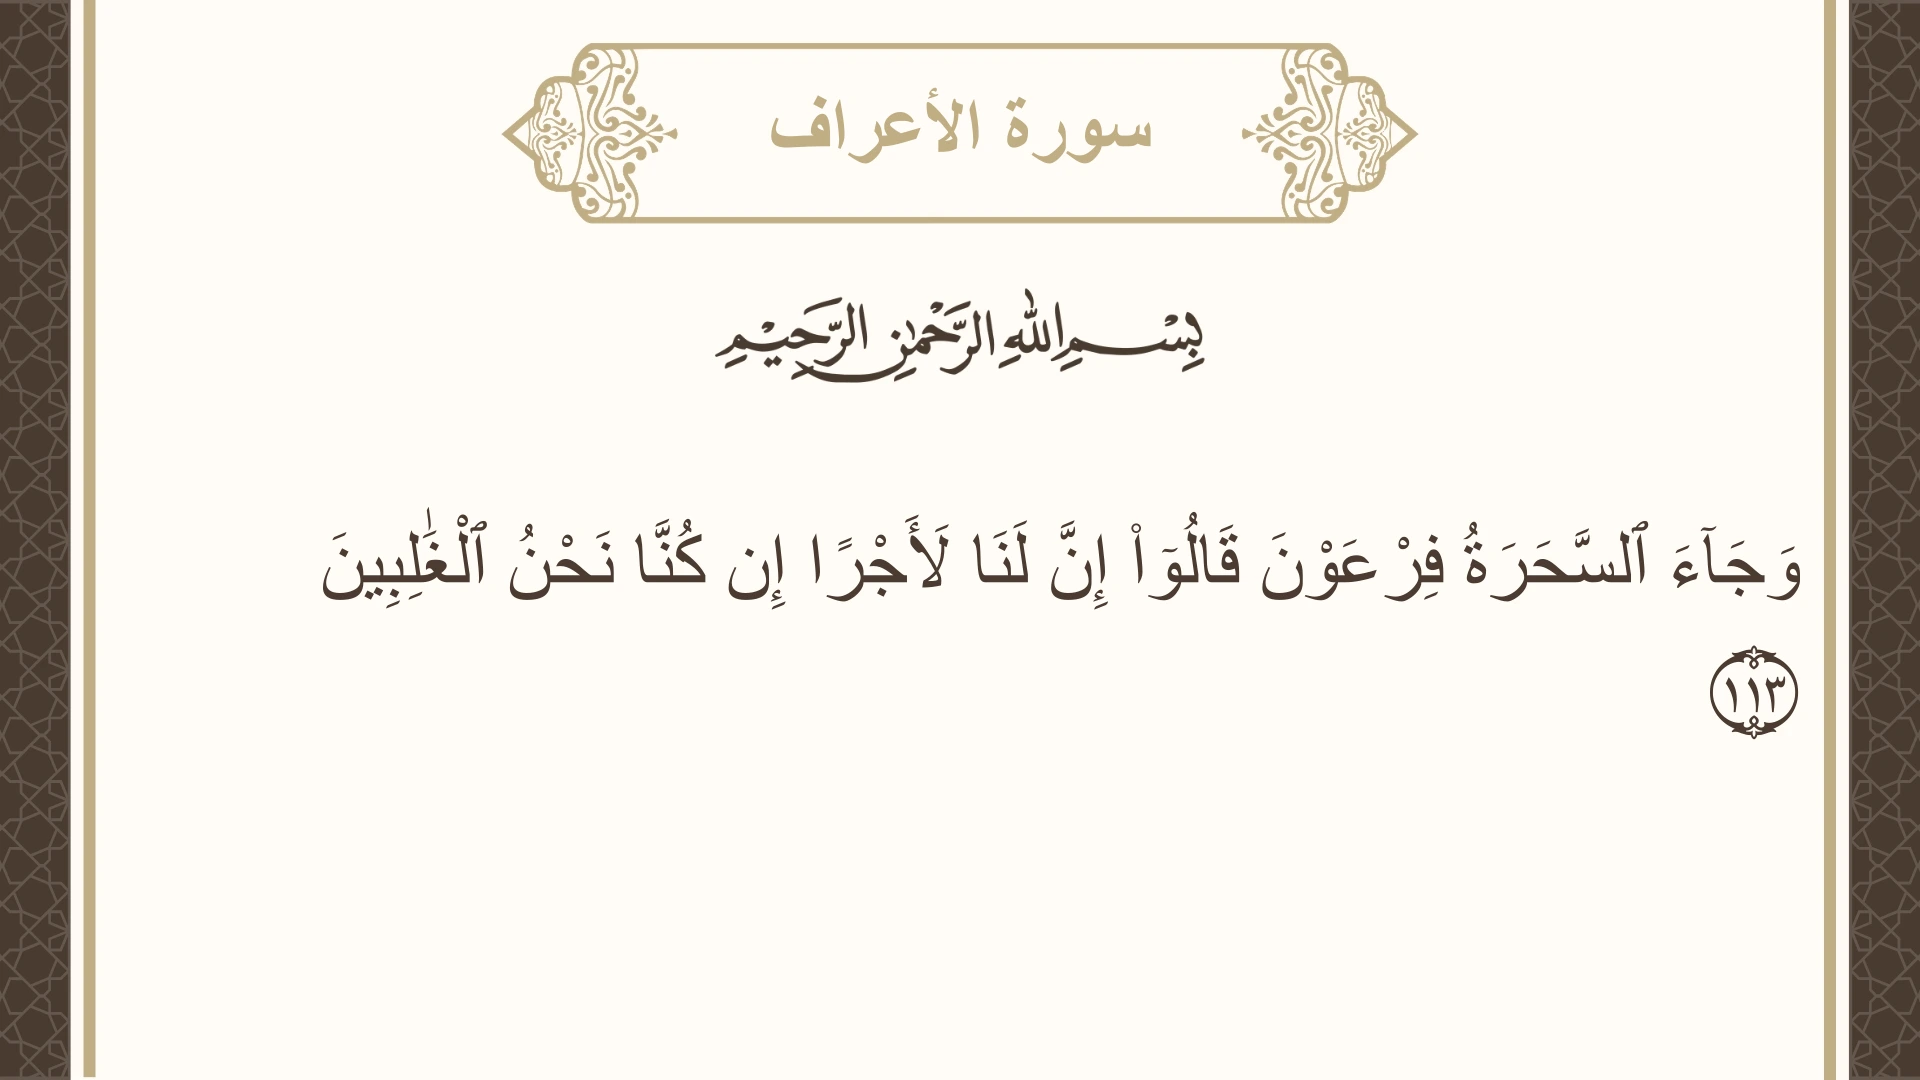 سورة الأعراف
بِسْمِ اللهِ الرَّحْمٰنِ الرَّحِيْمِ
وَجَآءَ ٱلسَّحَرَةُ فِرْعَوْنَ قَالُوٓا۟ إِنَّ لَنَا لَأَجْرًا إِن كُنَّا نَحْنُ ٱلْغَٰلِبِينَ
١١٣